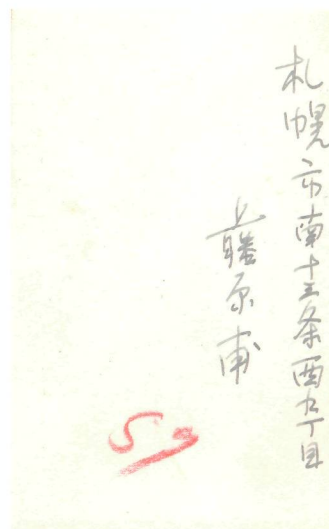 札幌市南十三条西九丁目
藤原甫
50